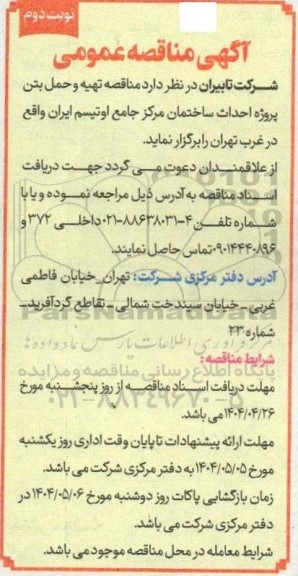 نوبت دوم
آگهی مناقصه عمومی
شرکت تابیران در نظر دارد مناقصه تهیه و حمل بتن
پروژه احداث ساختمان مرکز جامع اوتیسم ایران واقع
در غرب تهران را برگزار نماید.
از علاقمندان دعوت می گردد جهت دریافت
اسناد مناقصه به آدرس ذیل مراجعه نموده و یا با
شماره تلفن ۴-۸۸۶۳۸۰۳۱-۰۲۱ داخلی ۳۷۲ و
۰۹۰۱۴۴۴۰۸۹۶ تماس حاصل نمایند.
آدرس دفتر مرکزی شرکت: تهران_خیابان فاطمی
غربی_خیابان سیندخت شمالی_تقاطع گردآفرید_
شماره ۲۳
ParsNamadData
مرکز فرآوری اطلاعات پارس نماد داده ها
شرایط مناقصه:
پایگاه اطلاع رسانی مناقصه و مزایده
مهلت دریافت اسناد مناقصه از روز پنجشنبه مورخ
۰۲۱-۸۸۳۴۹۶۷۰-۵
۱۴۰۴/۰۴/۲۶ می باشد.
مهلت ارائه پیشنهادات تا پایان وقت اداری روز یکشنبه
مورخ ۱۴۰۴/۰۵/۰۵ به دفتر مرکزی شرکت می باشد.
زمان بازگشایی پاکات روز دوشنبه مورخ ۱۴۰۴/۰۵/۰۶ در
دفتر مرکزی شرکت می باشد.
شرایط معامله در محل مناقصه موجود می باشد.